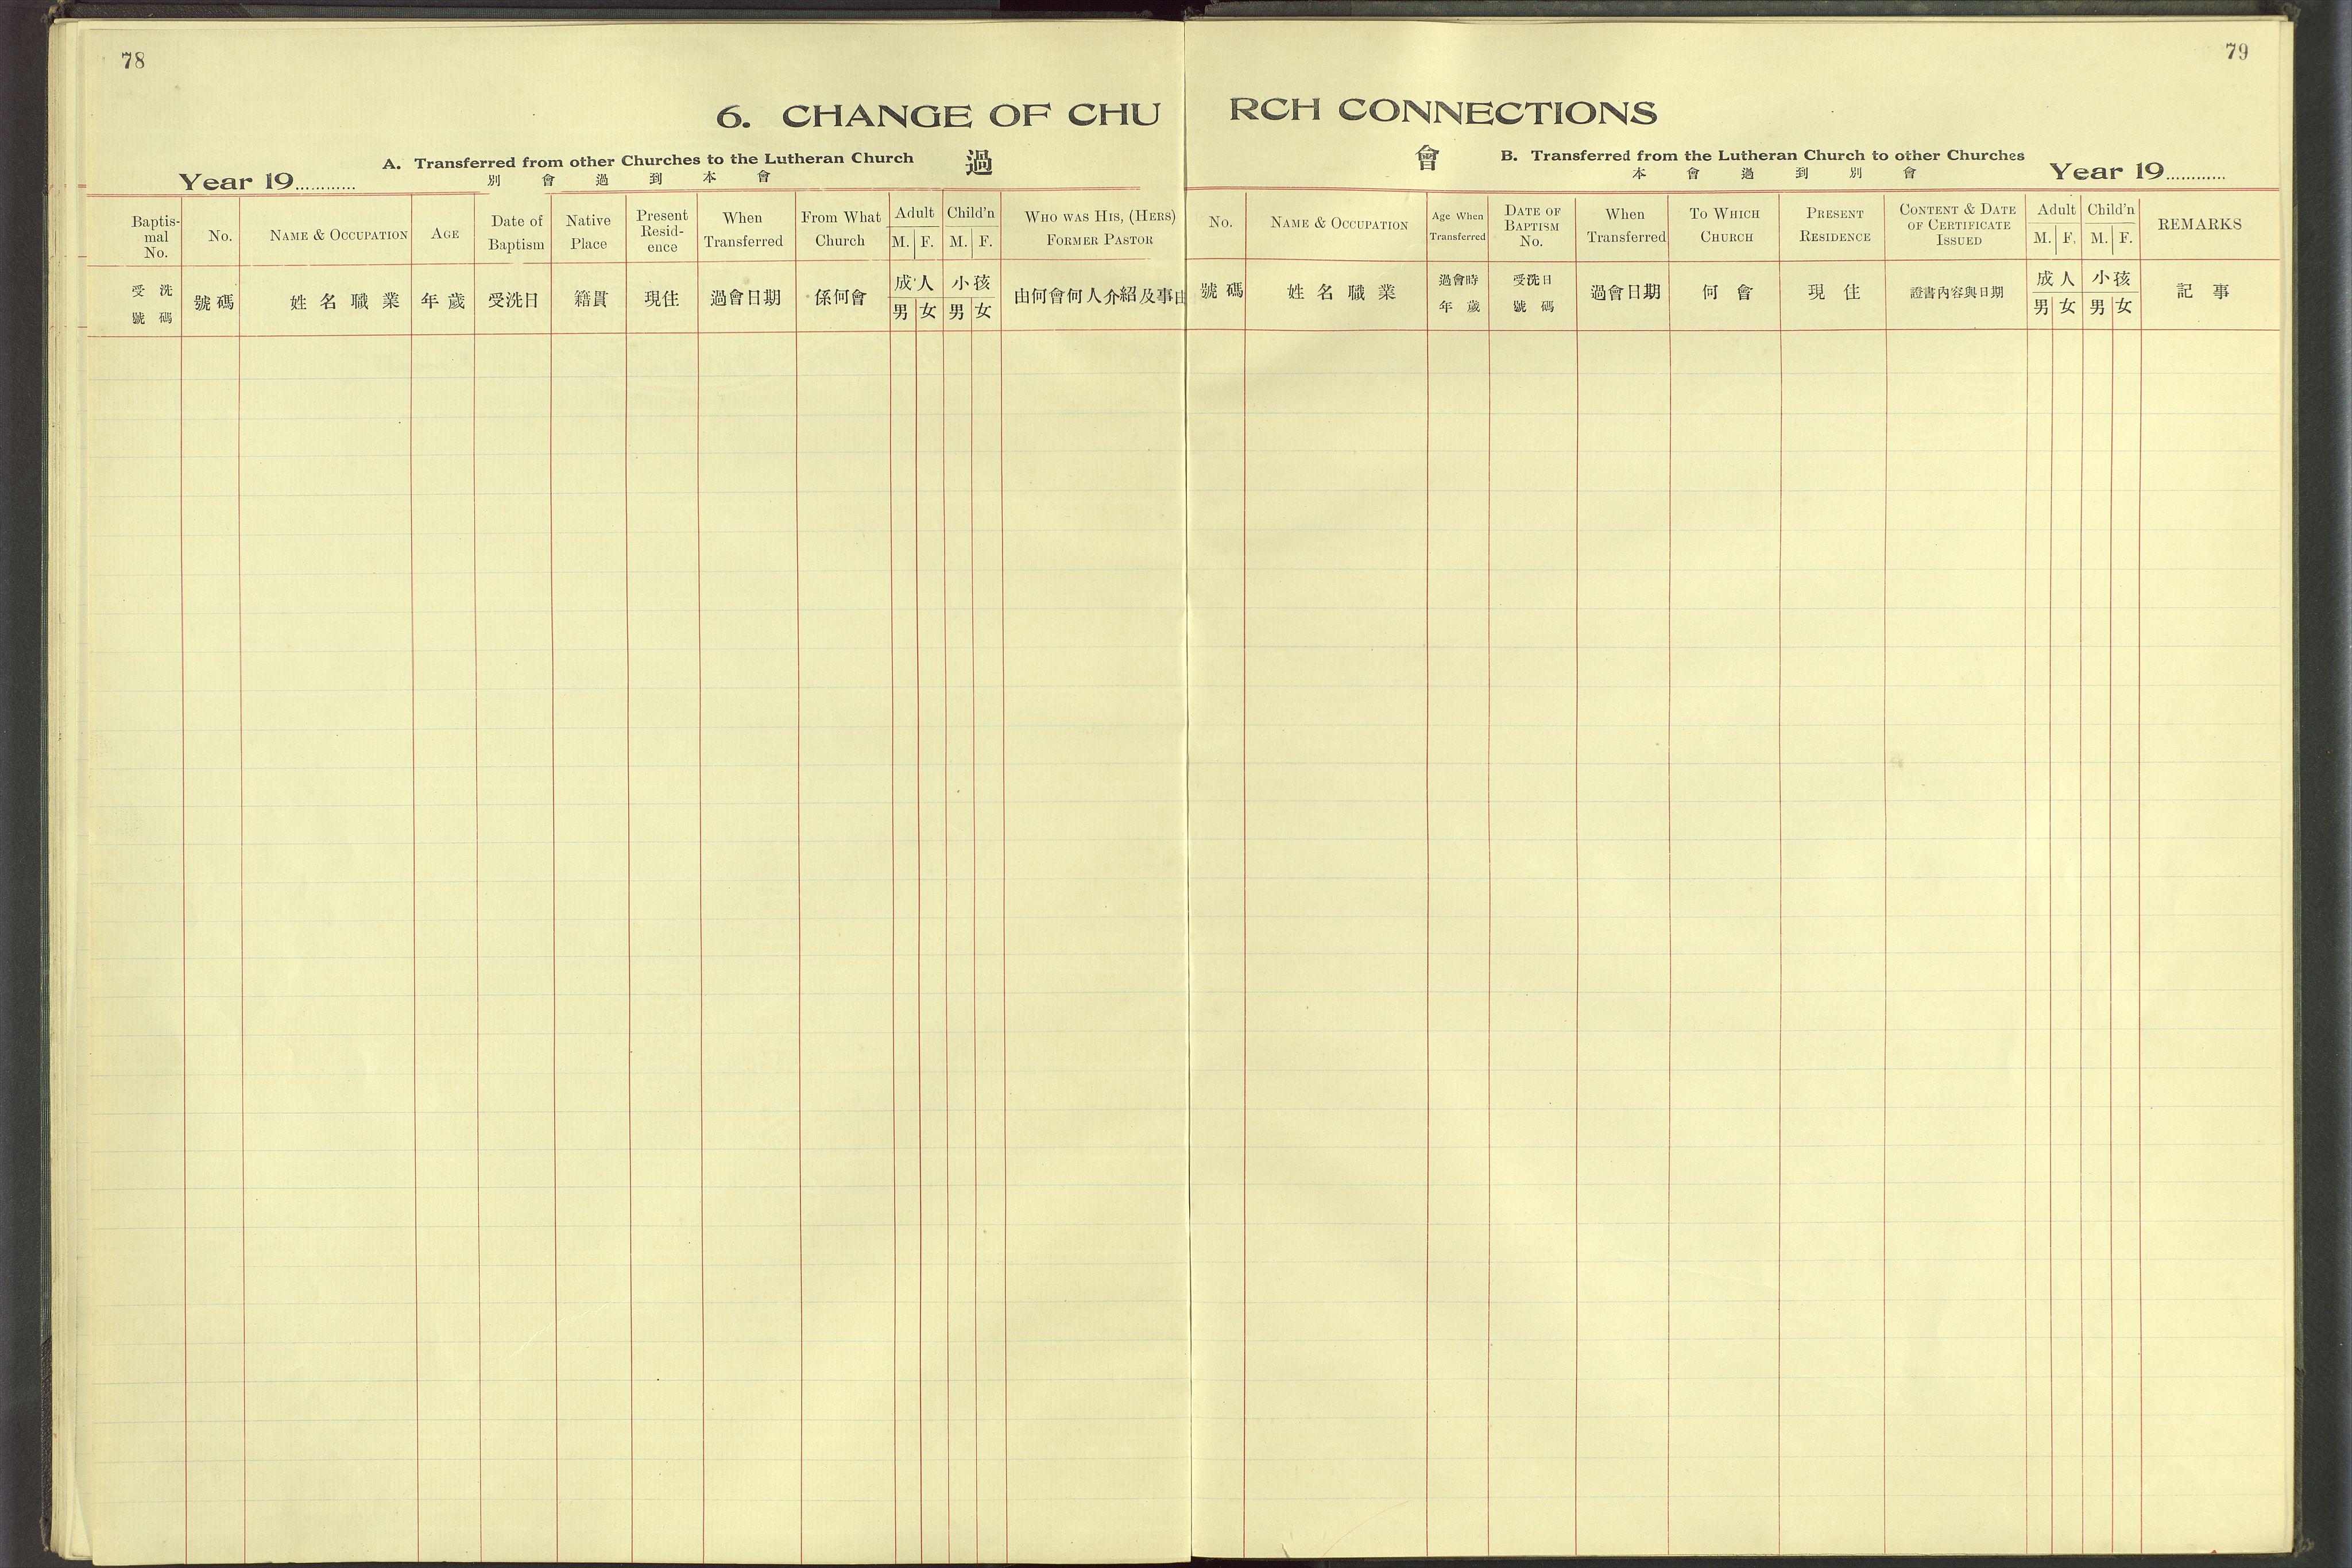 78
6. CHANGE OF CHU
A. Transferred from other Churches to the Lutheran Church
過
別 會 過 到 本 會
Year 19............
Baptis-
mal
No.
No.
NAME & OCCUPATION
AGE
Date of
Baptism
Native
Place
Present
Resid-
ence
When
Transferred
From What
Church
Adult
M. F.
Child'n
M. F.
WHO WAS HIS, (HERS)
FORMER PASTOR
受 洗
號 碼
號 碼
姓 名 職 業
年 歲
受洗日
籍貫
現住
過會日期
係何會
成人
男 女
小孩
男 女
由何會何人介紹及事由
79
RCH CONNECTIONS
會
B. Transferred from the Lutheran Church to other Churches
本 會 過 到 別 會
Year 19............
No.
NAME & OCCUPATION
Age When
Transferred
DATE OF
BAPTISM
No.
When
Transferred
TO WHICH
CHURCH
PRESENT
RESIDENCE
CONTENT & DATE
OF CERTIFICATE
ISSUED
Adult
M. F.
Child'n
M. F.
REMARKS
號 碼
姓 名 職 業
過會時
年 歲
受洗日
號 碼
過會日期
何 會
現 住
證書內容與日期
成人
男 女
小孩
男 女
記 事